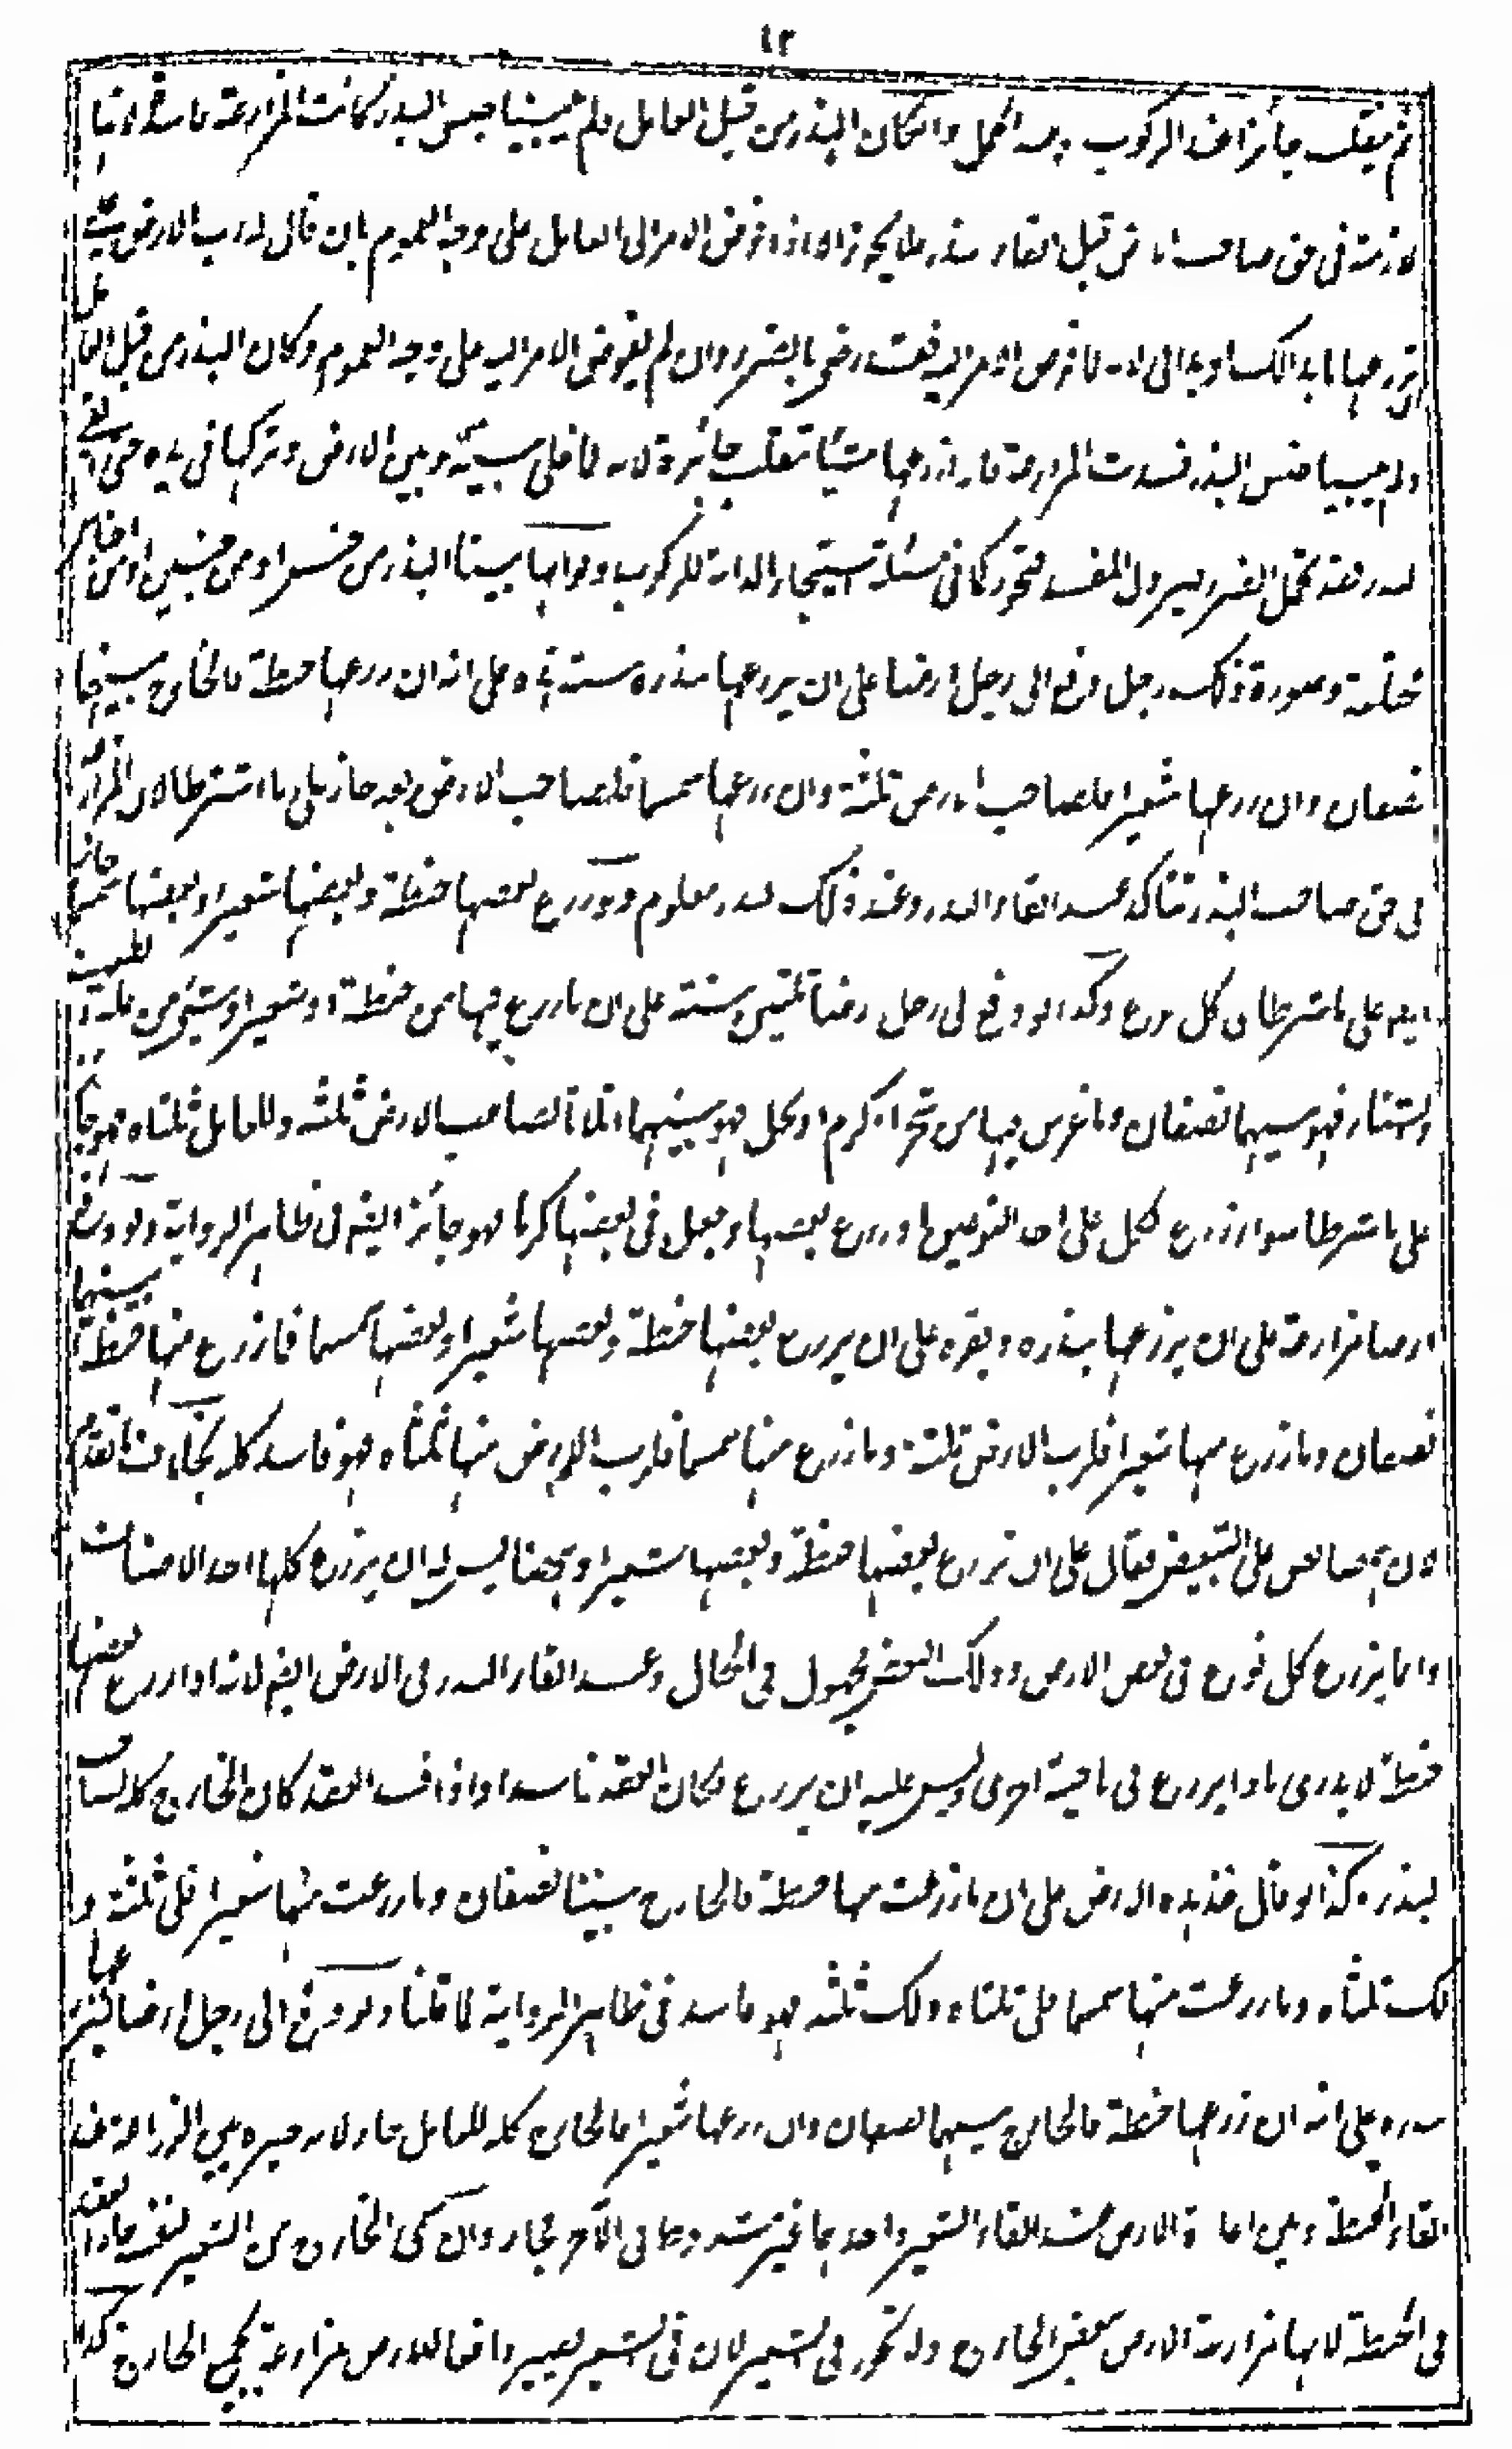 ٤٢
ثم ينقلب جائزا عند الركوب وان كان البذر من قبل العامل ولم يبينا جنس البذر كانت المزارعة فاسدة لانها
لازمة في حق صاحب قبل القاء بذر فلا يجوز الا اذا فوض الامر الى العامل على وجه العموم بان قال له رب الارض على
ان تزرعها ما بدا لك او بدا لى لانه لما فوض الامر اليه فقد رضى بالضرر وان لم يفوض الامر اليه على وجه العموم وكان البذر من قبل العامل
ولم يبينا جنس البذر فسدت المزارعة فاذا زرعها شيئا تنقلب جائزة لانه لما خلى بينه وبين الارض وتركها في يده حتى القى
البذر فقد تحمل الضرر فيزول المفسد فتجوز كما في مسئلة استيجار الدابة للركوب ولو انهما بينا البذر من جنس او من جنسين او من اجناس
مختلفة وصورة ذلك رجل دفع الى رجل ارضا على ان يزرعها ببذره سنة هذه على انه ان زرعها حنطة فالخارج بينهما
نصفان وان زرعها شعيرا فلصاحب الارض ثلثه وان زرعها سمسما فلصاحب الارض ربعه جاز على ما اشترطا لان المزارعة
في حق صاحب البذر تتأكد عند القاء البذر وعند ذلك البذر معلوم ولو زرع بعضها حنطة وبعضها شعيرا وبعضها سمسما جاز
ايضا على ما اشترطا في كل نوع وكذا لو دفع الى رجل ارضا ثلثين سنة على ان ما زرع فيها من حنطة او شعير او شيئ من غلة الصيف
والشتاء فهو بينهما نصفان وما غرس فيها من شجر او كرم او نخل فهو بينهما اثلاثا لصاحب الارض ثلثه وللعامل ثلثاه فهو جائز
على ما اشترطا سواء زرع الكل على احد النوعين او زرع بعضها وجعل في بعضها كرما فهو جائز ايضا في ظاهر الرواية ولو دفع
ارضا مزارعة على ان يزرعها ببذره وبقره على ان يزرع بعضها حنطة وبعضها شعيرا وبعضها سمسما فما زرع منها حنطة فبينهما
نصفان وما زرع منها شعيرا فلرب الارض ثلثه وما زرع منها سمسما فلرب الارض منها ثلثاه فهو فاسد كله بخلاف ما تقدم
لان ثمة نص على التبعيض فقال على ان تزرع بعضها حنطة وبعضها شعيرا وههنا ليس له ان يزرع كلها احد الاصناف
وانما يزرع كل نوع في بعض الارض وذلك البعض مجهول في الحال وعند القاء البذر في الارض ايضا لانه اذا زرع بعضها
حنطة لا يدرى ماذا يزرع في ناحية اخرى وليس عليه ان يزرع فكان العقد فاسدا واذا فسد العقد كان الخارج كله لصاحب
البذر وكذا لو قال خذ هذه الارض على ان ما زرعت منها حنطة فالخارج بيننا نصفان وما زرعت منها شعيرا فلى ثلثه و
لك ثلثاه وما زرعت منها سمسما فلى ثلثاه ولك ثلثه فهو فاسد في ظاهر الرواية لما قلنا ولو دفع الى رجل ارضا ليزرعها
ببذره على انه ان زرعها حنطة فالخارج بينهما نصفان وان زرعها شعيرا فالخارج كله للعامل جاز لانه خيره بين المزارعة عند
القاء الحنطة وبين اعارة الارض عند القاء الشعير واحدهما غير مشروط في الآخر فجاز وان كان الخارج من الشعير لنفسه جاز العقد
في الحنطة لانها مزارعة الارض ببعض الخارج ولا تجوز في الشعير لان في الشعير يصير دافعا للارض مزارعة بجميع الخارج وكذا